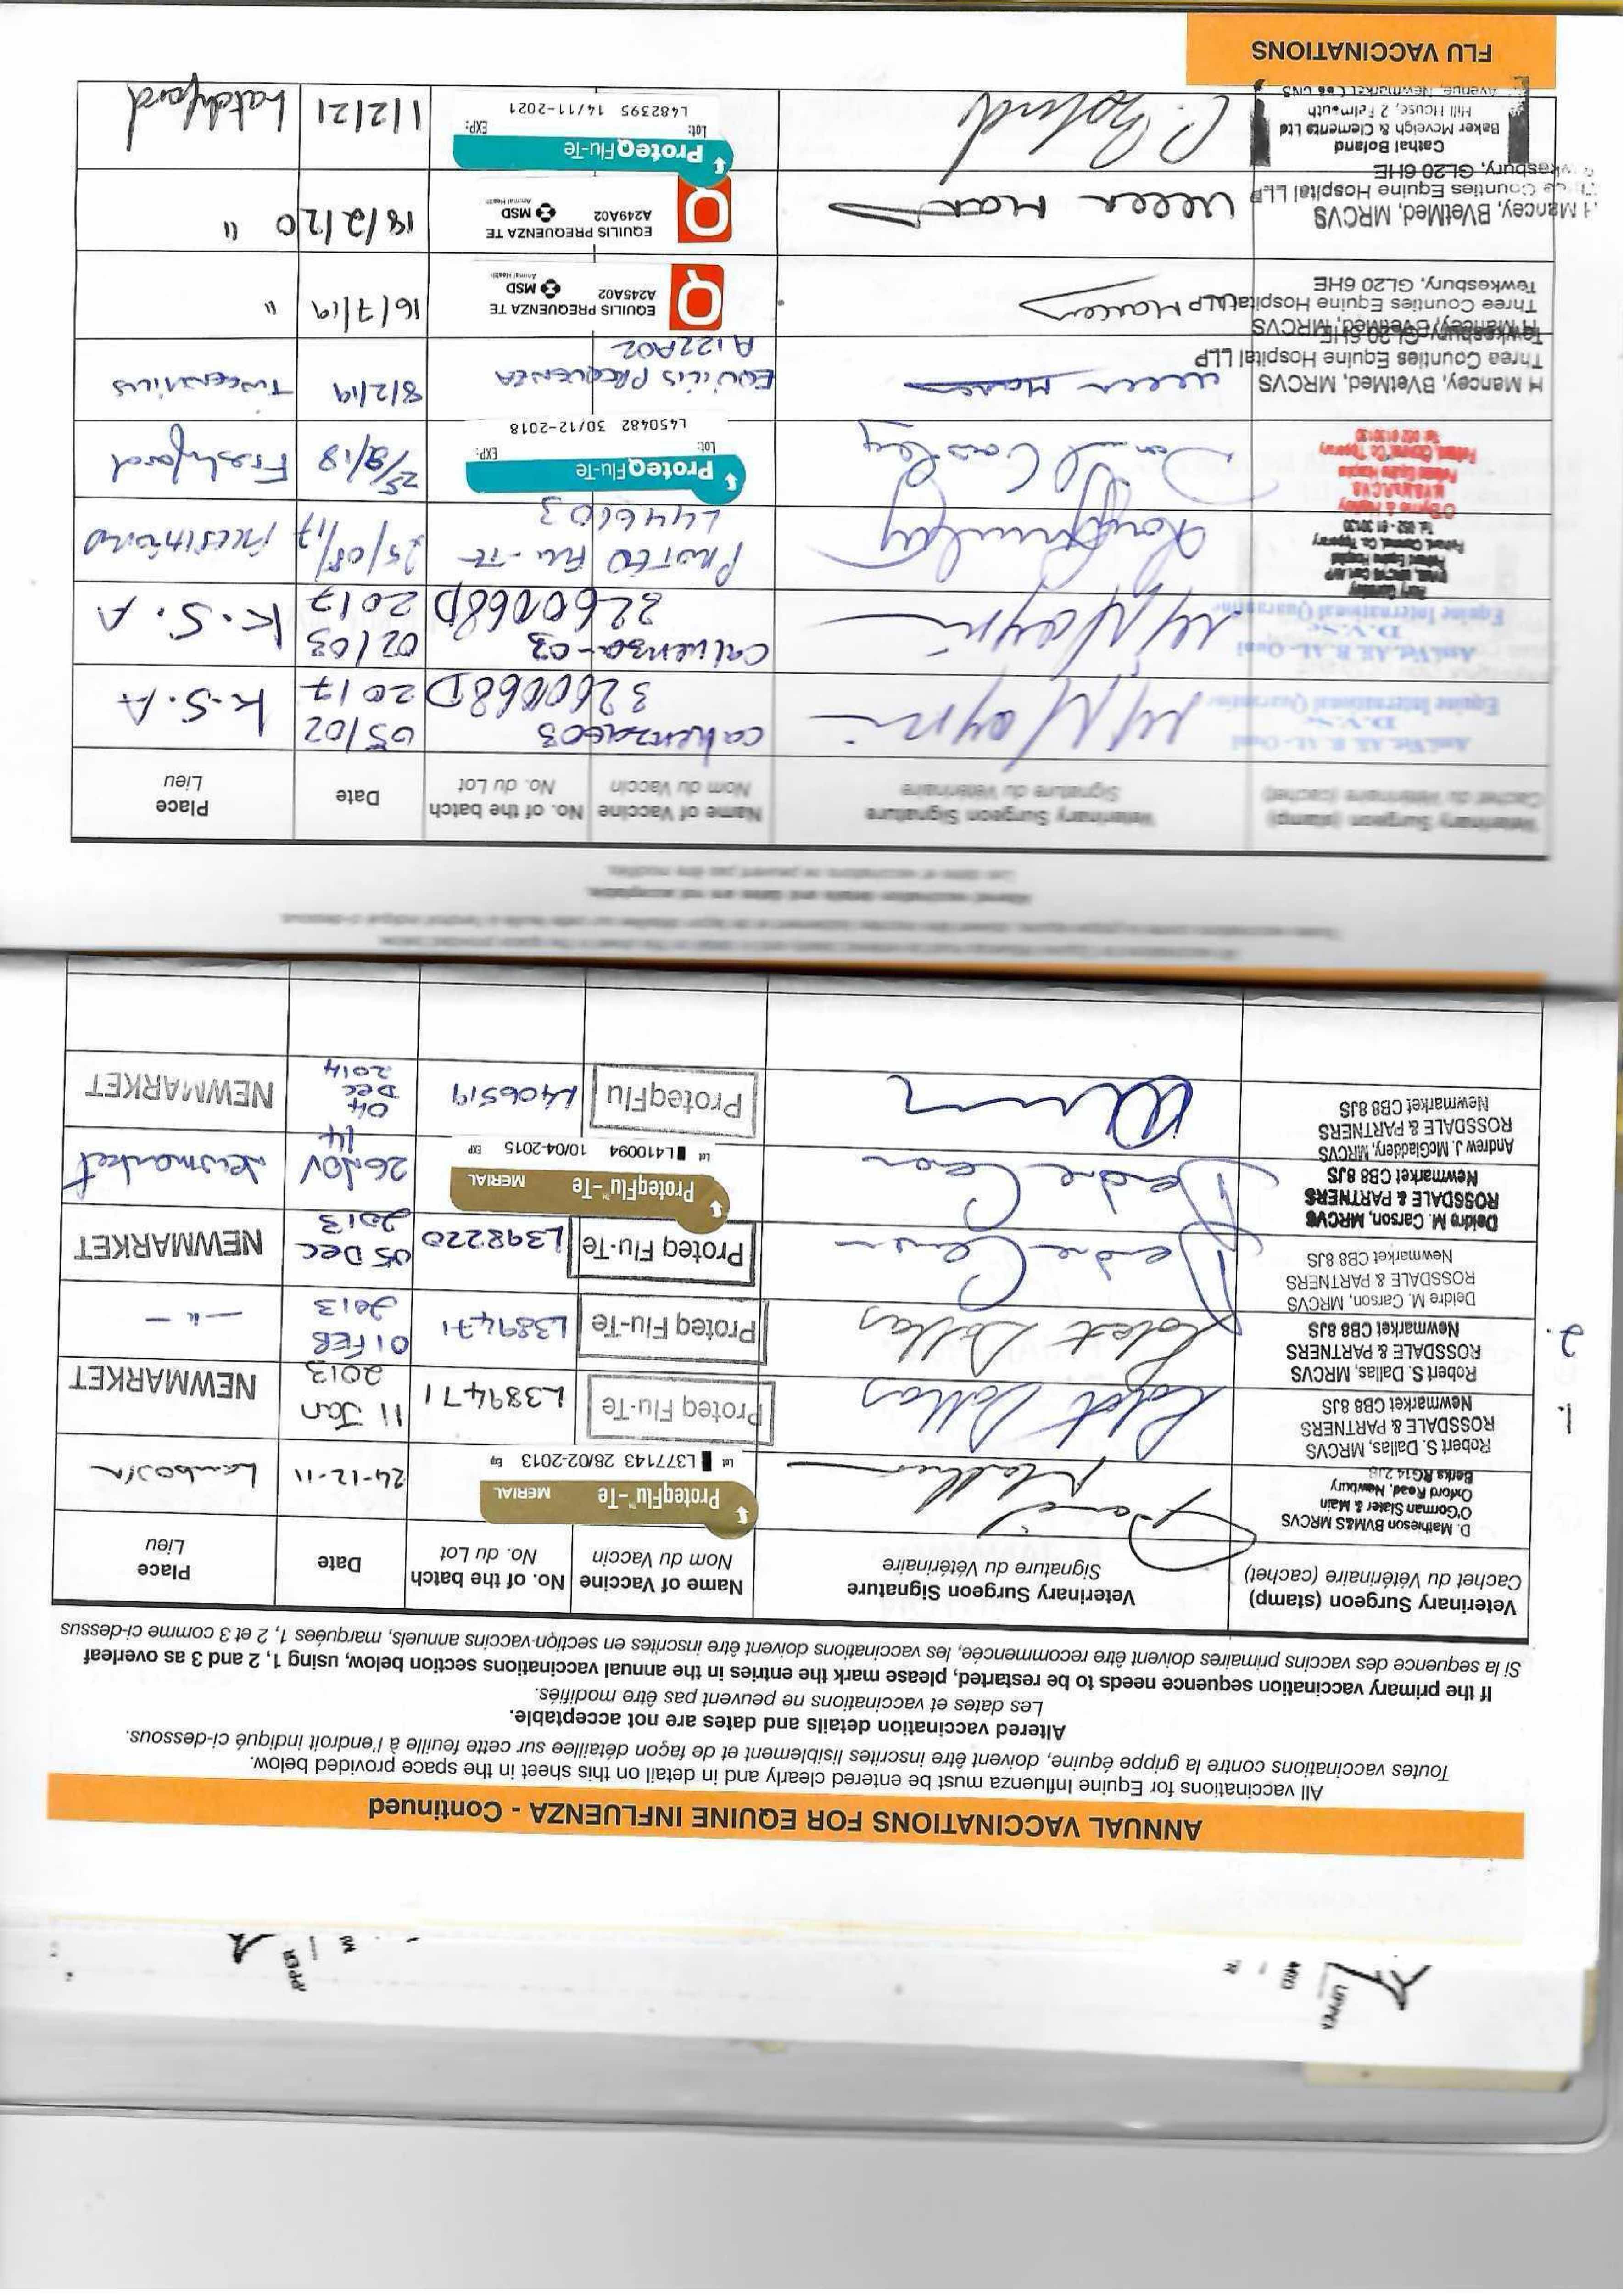 ANNUAL VACCINATIONS FOR EQUINE INFLUENZA - Continued
All vaccinations for Equine Influenza must be entered clearly and in detail on this sheet in the space provided below.
Toutes vaccinations contre la grippe équine, doivent être inscrites lisiblement et de façon détaillee sur cette feuille à l'endroit indiqué ci-dessous.
Altered vaccination details and dates are not acceptable.
Les dates et vaccinations ne peuvent pas être modifiés.
If the primary vaccination sequence needs to be restarted, please mark the entries in the annual vaccinations section below, using 1, 2 and 3 as overleaf
Si la sequence des vaccins primaires doivent être recommencée, les vaccinations doivent être inscrites en section vaccins annuels, marquées 1, 2 et 3 comme ci-dessus
Veterinary Surgeon (stamp) Veterinary Surgeon Signature Name of Vaccine No. of the batch Date Place
Cachet du Vétérinaire (cachet) Signature du Vétérinaire Nom du Vaccin No. du Lot Lieu
D. Mathieson BVM&S MRCVS
O'Gorman Slater & Main
Oxford Road, Newbury
Berks RG14 2JB
ProteqFlu™-Te MERIAL
Lot L377143 28/02-2013 Exp
24-12-11 Lambourn
1.
Robert S. Dallas, MRCVS
ROSSDALE & PARTNERS
Newmarket CB8 8JS
Robert Dallas
Proteq Flu-Te L389471 11 Jan 2013 NEWMARKET
2.
Robert S. Dallas, MRCVS
ROSSDALE & PARTNERS
Newmarket CB8 8JS
Robert Dallas
Proteq Flu-Te L389471 01 FEB 2013 — " —
Deidre M. Carson, MRCVS
ROSSDALE & PARTNERS
Newmarket CB8 8JS
Deidre Carson
Proteq Flu-Te L398220 05 Dec 2013 NEWMARKET
Deidre M. Carson, MRCVS
ROSSDALE & PARTNERS
Newmarket CB8 8JS
Deidre Carson
ProteqFlu™-Te MERIAL
Lot L410094 10/04-2015 EXP
26 NOV 14 Newmarket
Andrew J. McGladdery, MRCVS
ROSSDALE & PARTNERS
Newmarket CB8 8JS
ProteqFlu L406519 04 Dec 2014 NEWMARKET
Altered vaccination details and dates are not acceptable.
Les dates et vaccinations ne peuvent pas être modifiés.
Veterinary Surgeon (stamp) Veterinary Surgeon Signature Name of Vaccine No. of the batch Date Place
Cachet du Vétérinaire (cachet) Signature du Vétérinaire Nom du Vaccin No. du Lot Lieu
D.V.Sc
Equine International Quarantine
3260068D
05/02 2017 K.S.A
D.V.Sc
Equine International Quarantine
Calvenza-03
3260068D
02/03 2017 K.S.A
PROTEQ Flu-Te
L446103
25/08/17
ProteqFlu-Te
Lot: EXP:
L450482 30/12-2018
25/8/18 Freshford
H Mancey, BVetMed, MRCVS
Three Counties Equine Hospital LLP
Tewkesbury, GL20 6HE
EQUILIS PREQUENZA
A122A02
8/2/19
H Mancey, BVetMed, MRCVS
Three Counties Equine Hospital LLP
Tewkesbury, GL20 6HE
EQUILIS PREQUENZA TE
A245A02 MSD
Animal Health
16/7/19 "
H Mancey, BVetMed, MRCVS
Counties Equine Hospital LLP
Tewkesbury, GL20 6HE
EQUILIS PREQUENZA TE
A249A02 MSD
Animal Health
18/2/20 "
Cathal Boland
Baker Mcveigh & Clements Ltd
Hill House, 2 Falmouth
Avenue, Newmarket
C. Boland
ProteqFlu-Te
Lot: EXP:
L482395 14/11-2021
1/2/21
FLU VACCINATIONS